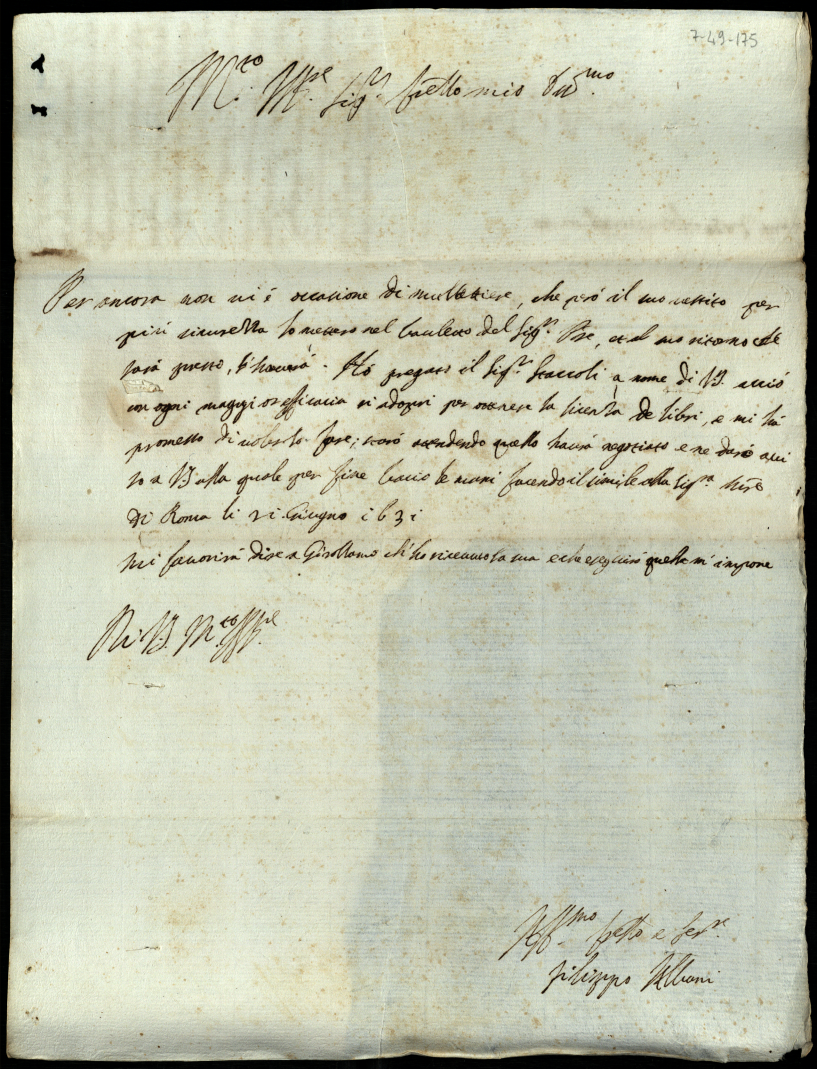 7-49-175
M.to Ill.re Sig.r fratello mio Oss.mo
Per ancora non vi è occasione di mullettiere, che però il suo vestito per
più sicurezza lo metterò nel bauletto del Sig.r Pre, et al suo ritorno che
sarà presto, l'haverà. Hò pregato il Sig.r Staccoli a nome di VS. acciò
con ogni maggior efficacia si adopri per ottenere la licenza de libri, e mi hà
promesso di volerlo fare; starò attendendo quello havrà negotiato e ne darò avvi
so a VS alla quale per fine bacio le mani facendo il simile alla Sig.ra
di Roma li 21 Giugno 1631
Mi favorirà dire a Girollamo ch'ho ricevuto la sua e che eseguirò quello m'impone
Di VS. M.to Ill.re
Aff.mo fratello e Ser.re
filippo Albani